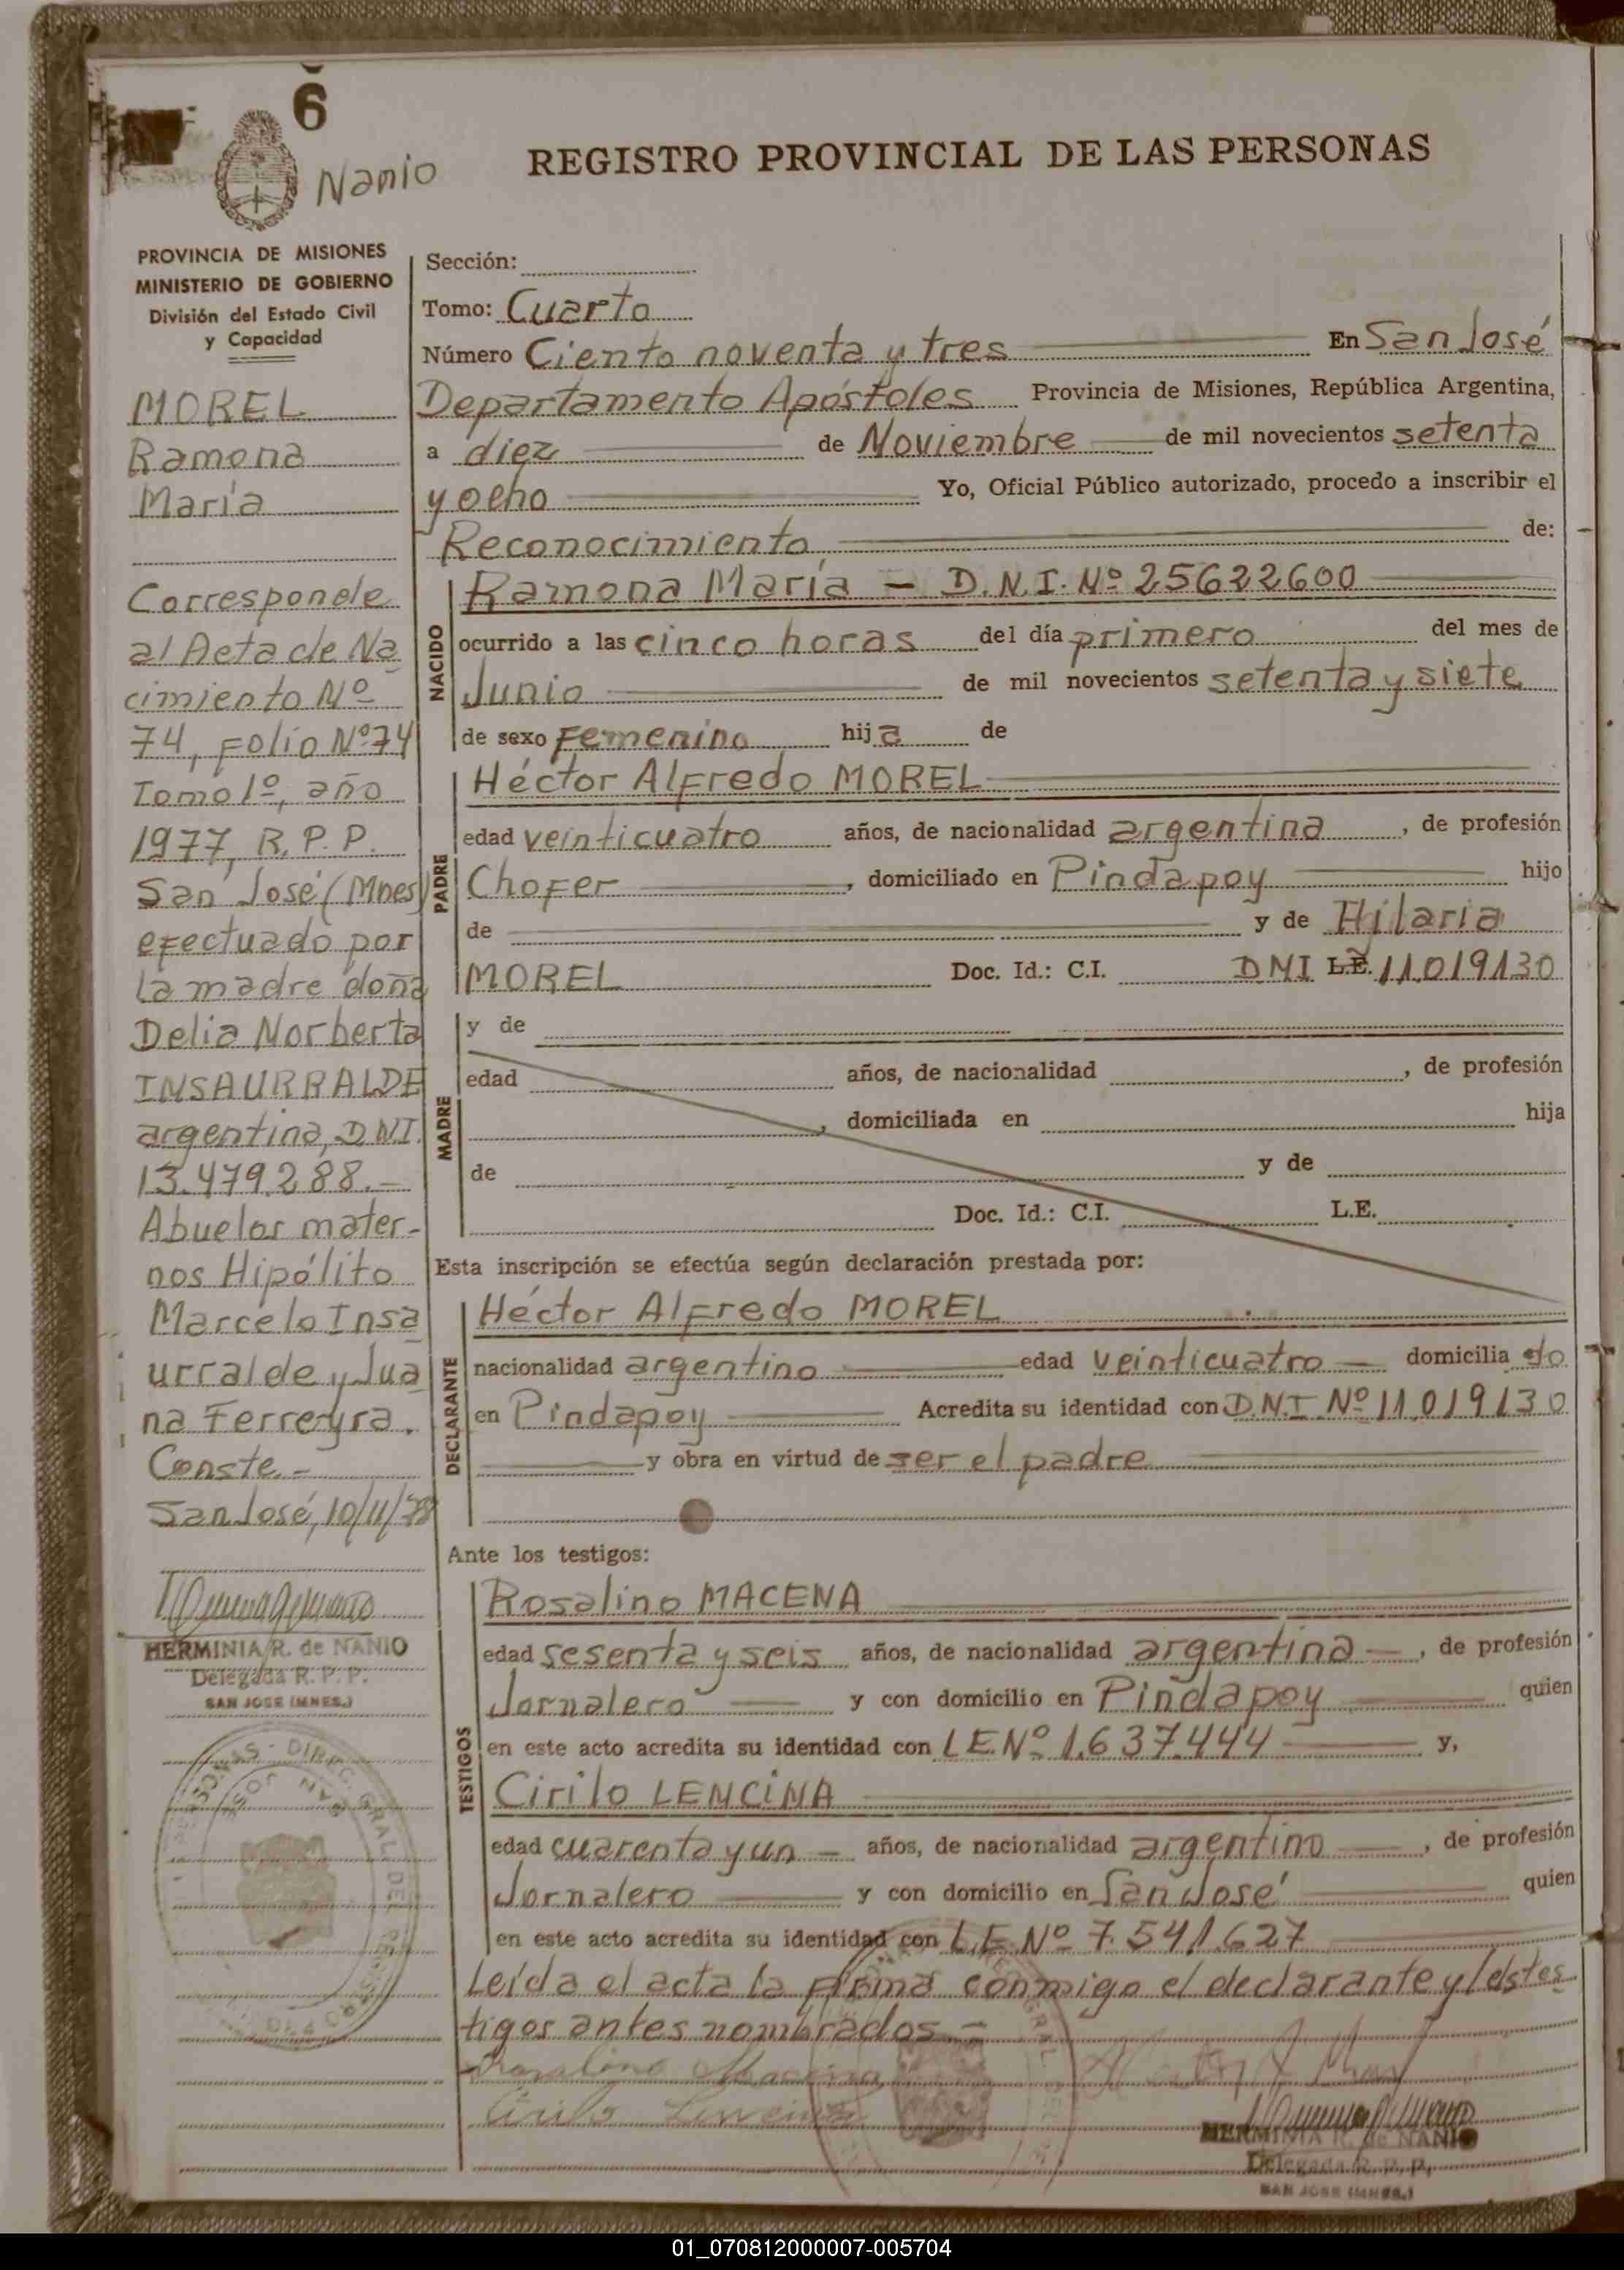 6
Nanio
REGISTRO PROVINCIAL DE LAS PERSONAS
PROVINCIA DE MISIONES
MINISTERIO DE GOBIERNO
División del Estado Civil
y Capacidad
MOREL
Ramona
María
Corresponde
al Acta de Na
cimiento Nº
74, Folio Nº 74
Tomo 1º, año
1977, R. P. P.
San José (Mnes)
efectuado por
la madre doña
Delia Norberta
INSAURRALDE
argentina, D.N.I.
13.479.288.-
Abuelos mater-
nos Hipólito
Marcelo Insa
urralde y Jua
na Ferreyra.
Conste.-
San José, 10/11/78
HERMINIA R. de NANIO
Delegada R. P. P.
SAN JOSE (MNES.)
Sección:
Tomo: Cuarto
Número Ciento noventa y tres En San José
Departamento Apóstoles Provincia de Misiones, República Argentina,
a diez de Noviembre de mil novecientos setenta
y ocho Yo, Oficial Público autorizado, procedo a inscribir el
Reconocimiento de:
NACIDO
Ramona María - D.N.I. Nº 25622600
ocurrido a las cinco horas del día primero del mes de
Junio de mil novecientos setenta y siete
de sexo Femenino hija de
PADRE
Héctor Alfredo MOREL
edad veinticuatro años, de nacionalidad argentina, de profesión
Chofer, domiciliado en Pindapoy hijo
de y de Hilaria
MOREL Doc. Id.: C.I. DNI L.E. 11.019.130
MADRE
y de
edad años, de nacionalidad , de profesión
, domiciliada en hija
de y de
Doc. Id.: C.I. L.E.
Esta inscripción se efectúa según declaración prestada por:
DECLARANTE
Héctor Alfredo MOREL
nacionalidad argentino edad veinticuatro domiciliado
en Pindapoy Acredita su identidad con D.N.I. Nº 11.019.130
y obra en virtud de ser el padre
Ante los testigos:
TESTIGOS
Rosalino MACENA
edad sesenta y seis años, de nacionalidad argentina, de profesión
Jornalero y con domicilio en Pindapoy quien
en este acto acredita su identidad con L.E. Nº 1.637.444 y,
Cirilo LENCINA
edad cuarenta y un años, de nacionalidad argentino, de profesión
Jornalero y con domicilio en San José quien
en este acto acredita su identidad con L.E. Nº 7.541.627
Leída el acta la firma conmigo el declarante y los tes
tigos antes nombrados.-
Rosalino Macena
Cirilo Lencina
HERMINIA R. de NANIO
Delegada R. P. P.
SAN JOSE (MNES.)
01_070812000007-005704